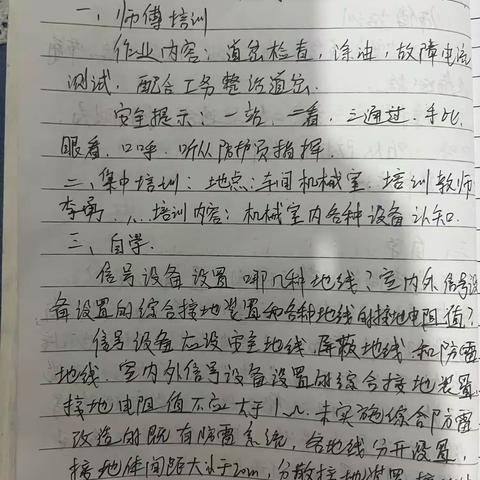 一、师傅培训
作业内容：道岔检查，涂油，故障电流
测试．配合工务整治道岔．
安全提示：一站 二看．三通过．手比、
眼看．口呼．听从防护员指挥．
二、集中培训：地点：车间机械室．培训教师
李勇．培训内容：机械室内各种设备认知．
三、自学．
信号设备设置哪几种地线？室内外信号设
备设置的综合接地装置和各种地线的接地电阻值？
信号设备应设安全地线．屏蔽地线．和防雷
地线．室内外信号设备设置的综合接地装置
接地电阻值不应大于1Ω．未实施综合防雷
改造的既有防雷系统，各地线分开设置，
接地体间距大于20m，分散接地装置